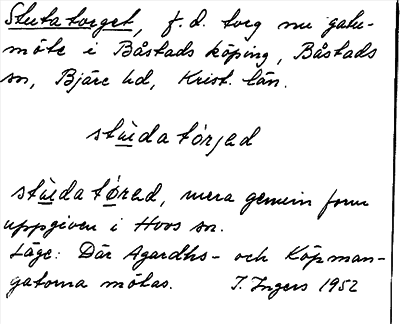 Stutatorget, f.d. torg nu gatu-
möte i Båstads köping, Båstads
sn, Bjäre hd, Krist. län.
stùidatórjad
stùidatørad, mera gemein form
uppgiven i Hovs sn.
Läge: Där Agardhs- och Köpman-
gatorna mötas. I. Ingers 1952